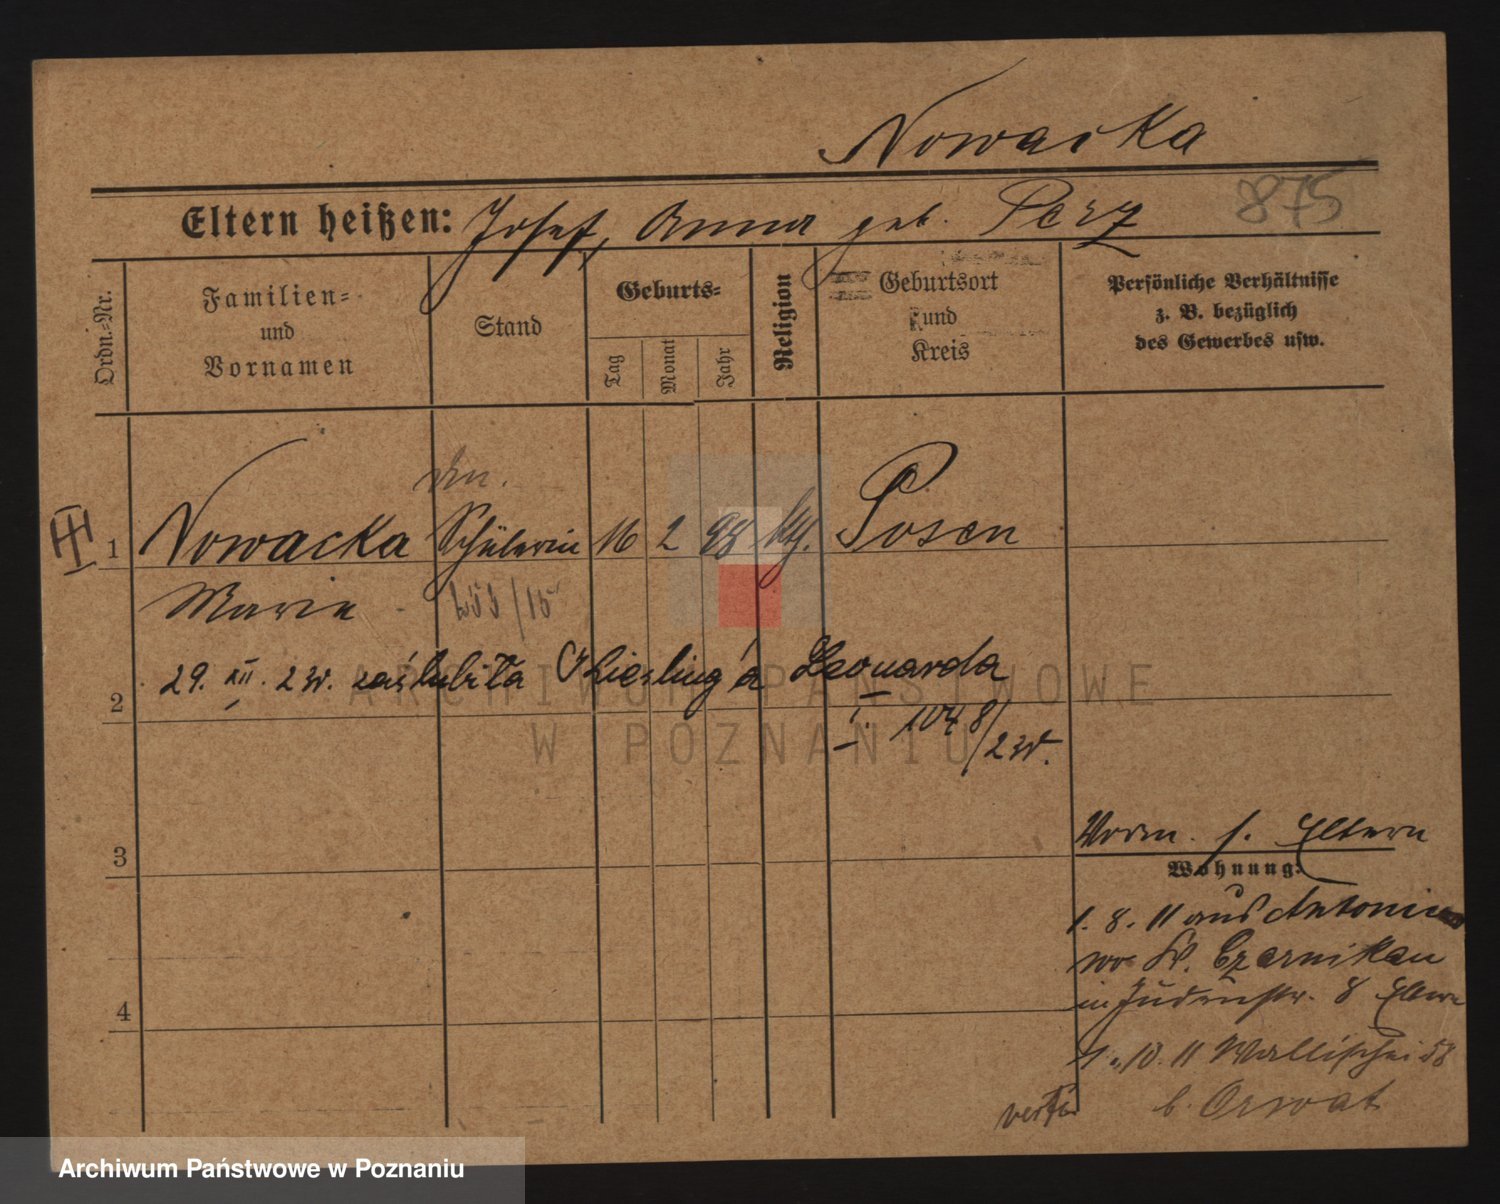 Nowacka
Eltern heißen: Josef, Anna geb. Perz 875
Ordn.-Nr.
Familien-
und
Vornamen
Stand
Geburts-
Tag
Monat
Jahr
Religion
Geburtsort
und
Kreis
Persönliche Verhältnisse
z. B. bezüglich
des Gewerbes usw.
III
1 Nowacka Schülerin 16 2 98 kth. Posen
Marie
29. XII. 23r. zaślubiła Leonarda
2
I. 1048/23r.
Vorm. s. Eltern
3
Wohnung:
1. 8. 11 aus Antonie
Czarnikau
4
in Judenstr. 8 Eltern
1. 10. 11 Wallischei 58
b. Orwat
ARCHIWUM PAŃSTWOWE
W POZNANIU
Archiwum Państwowe w Poznaniu